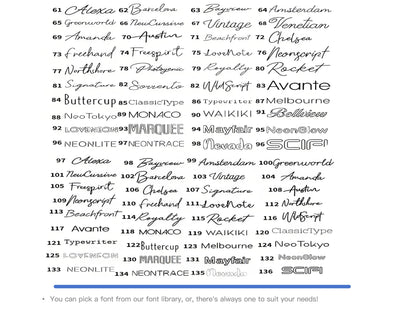 61 Alexa 62 Barcelona 63 Bayview 64 Amsterdam
65 Greenworld 66 NewCursive 67 Vintage 68 Venetian
69 Amanda 70 Austin 71 Beachfront 72 Chelsea
73 Freehand 74 Freespirit 75 LoveNote 76 Neonscript
77 Northshore 78 Photogenic 79 Royalty 80 Rocket
81 Signature 82 Sorrento 82 WildScript 83 Avante
84 Buttercup 85 ClassicType 86 Typewriter 87 Melbourne
88 NeoTokyo 89 MONACO 90 WAIKIKI 91 Bellview
92 LOVENEON 93 MARQUEE 94 Mayfair 95 NeonGlow
96 NEONLITE 97 NEONTRACE 98 Nevada 96 SCIFI
97 Alexa 98 Bayview 99 Amsterdam 100 Greenworld
101 NewCursive 102 Barcelona 103 Vintage 104 Amanda
105 Freespirit 106 Chelsea 107 Signature 108 Austin
109 Neonscript 110 Freehand 111 LoveNote 112 Northshore
113 Beachfront 114 Royalty 115 Rocket 116 WildScript
117 Avante 118 MONACO 119 WAIKIKI 120 ClassicType
121 Typewriter 122 Buttercup 123 Melbourne 124 NeoTokyo
125 LOVENEON 130 MARQUEE 131 Mayfair 132 NeonGlow
133 NEONLITE 134 NEONTRACE 135 Nevada 136 SCIFI
• You can pick a font from our font library, or, there's always one to suit your needs!